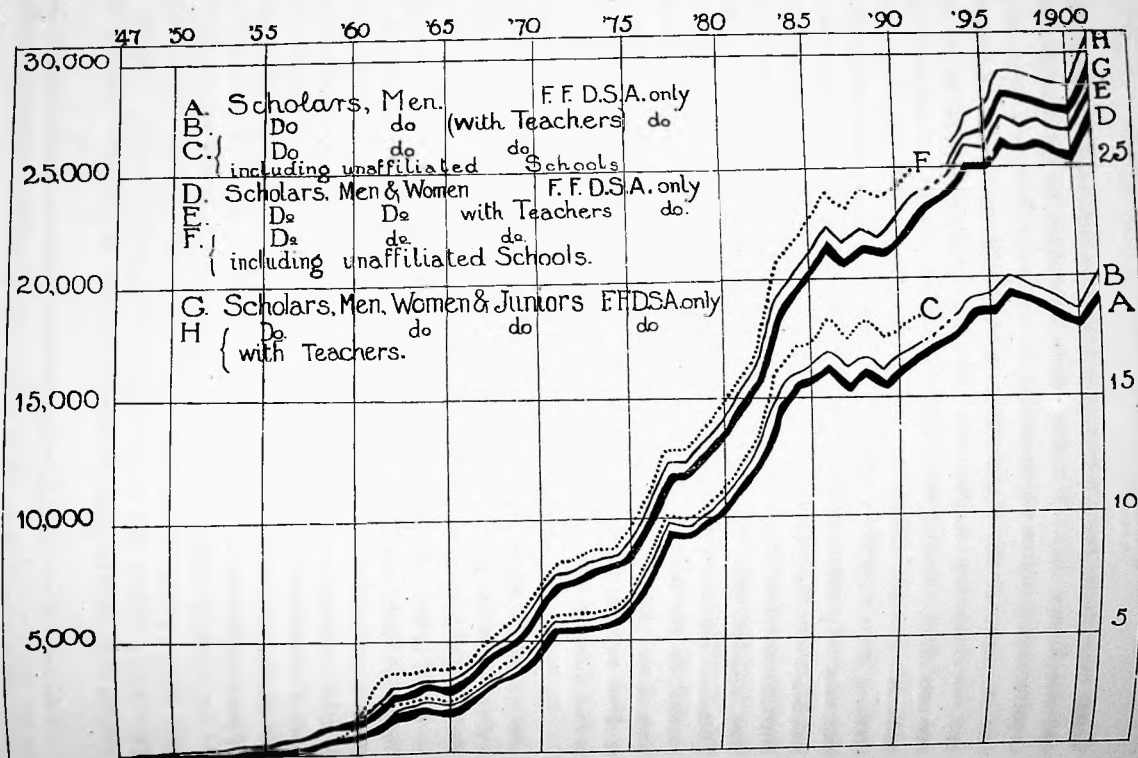 '47 '50 '55 '60 '65 '70 '75 '80 '85 '90 '95 1900
30,000
25,000
20,000
15,000
10,000
5,000
A. Scholars, Men. F. F. D.S.A. only
B. Do do (with Teachers) do
C. { Do do do
including unaffiliated Schools
D. Scholars. Men & Women F. F. D.S.A. only
E. Do Do with Teachers do.
F. { Do do do
including unaffiliated Schools.
G. Scholars, Men, Women & Juniors F.F.D.S.A. only
H { Do. do do do
with Teachers.
H
G
E
D
25
F
B
A
C
15
10
5